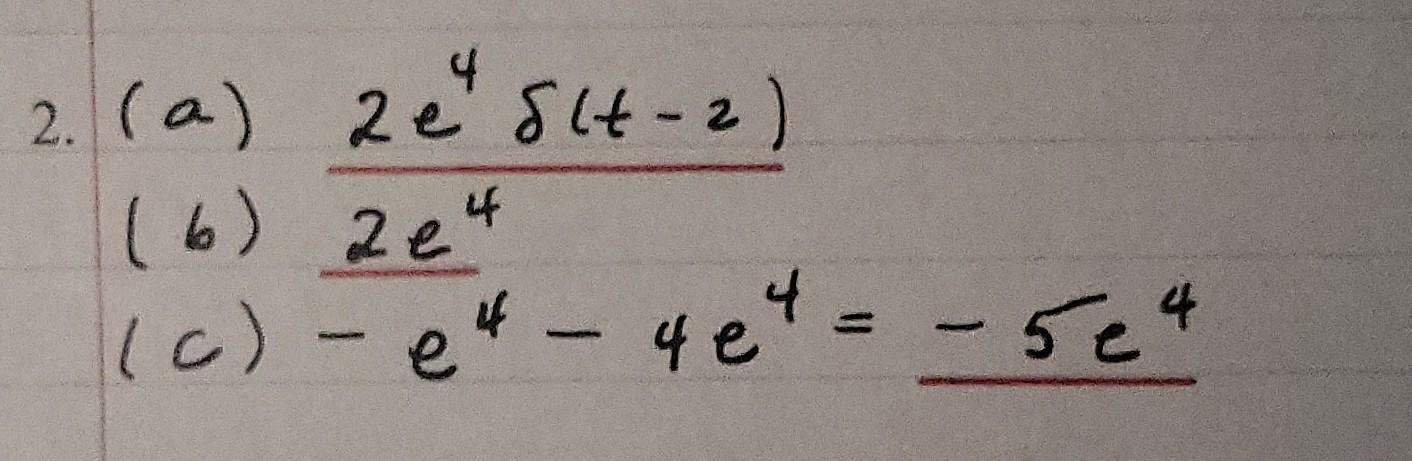 2. (a) 2e⁴ δ(t-2)
(b) 2e⁴
(c) -e⁴ - 4e⁴ = -5e⁴